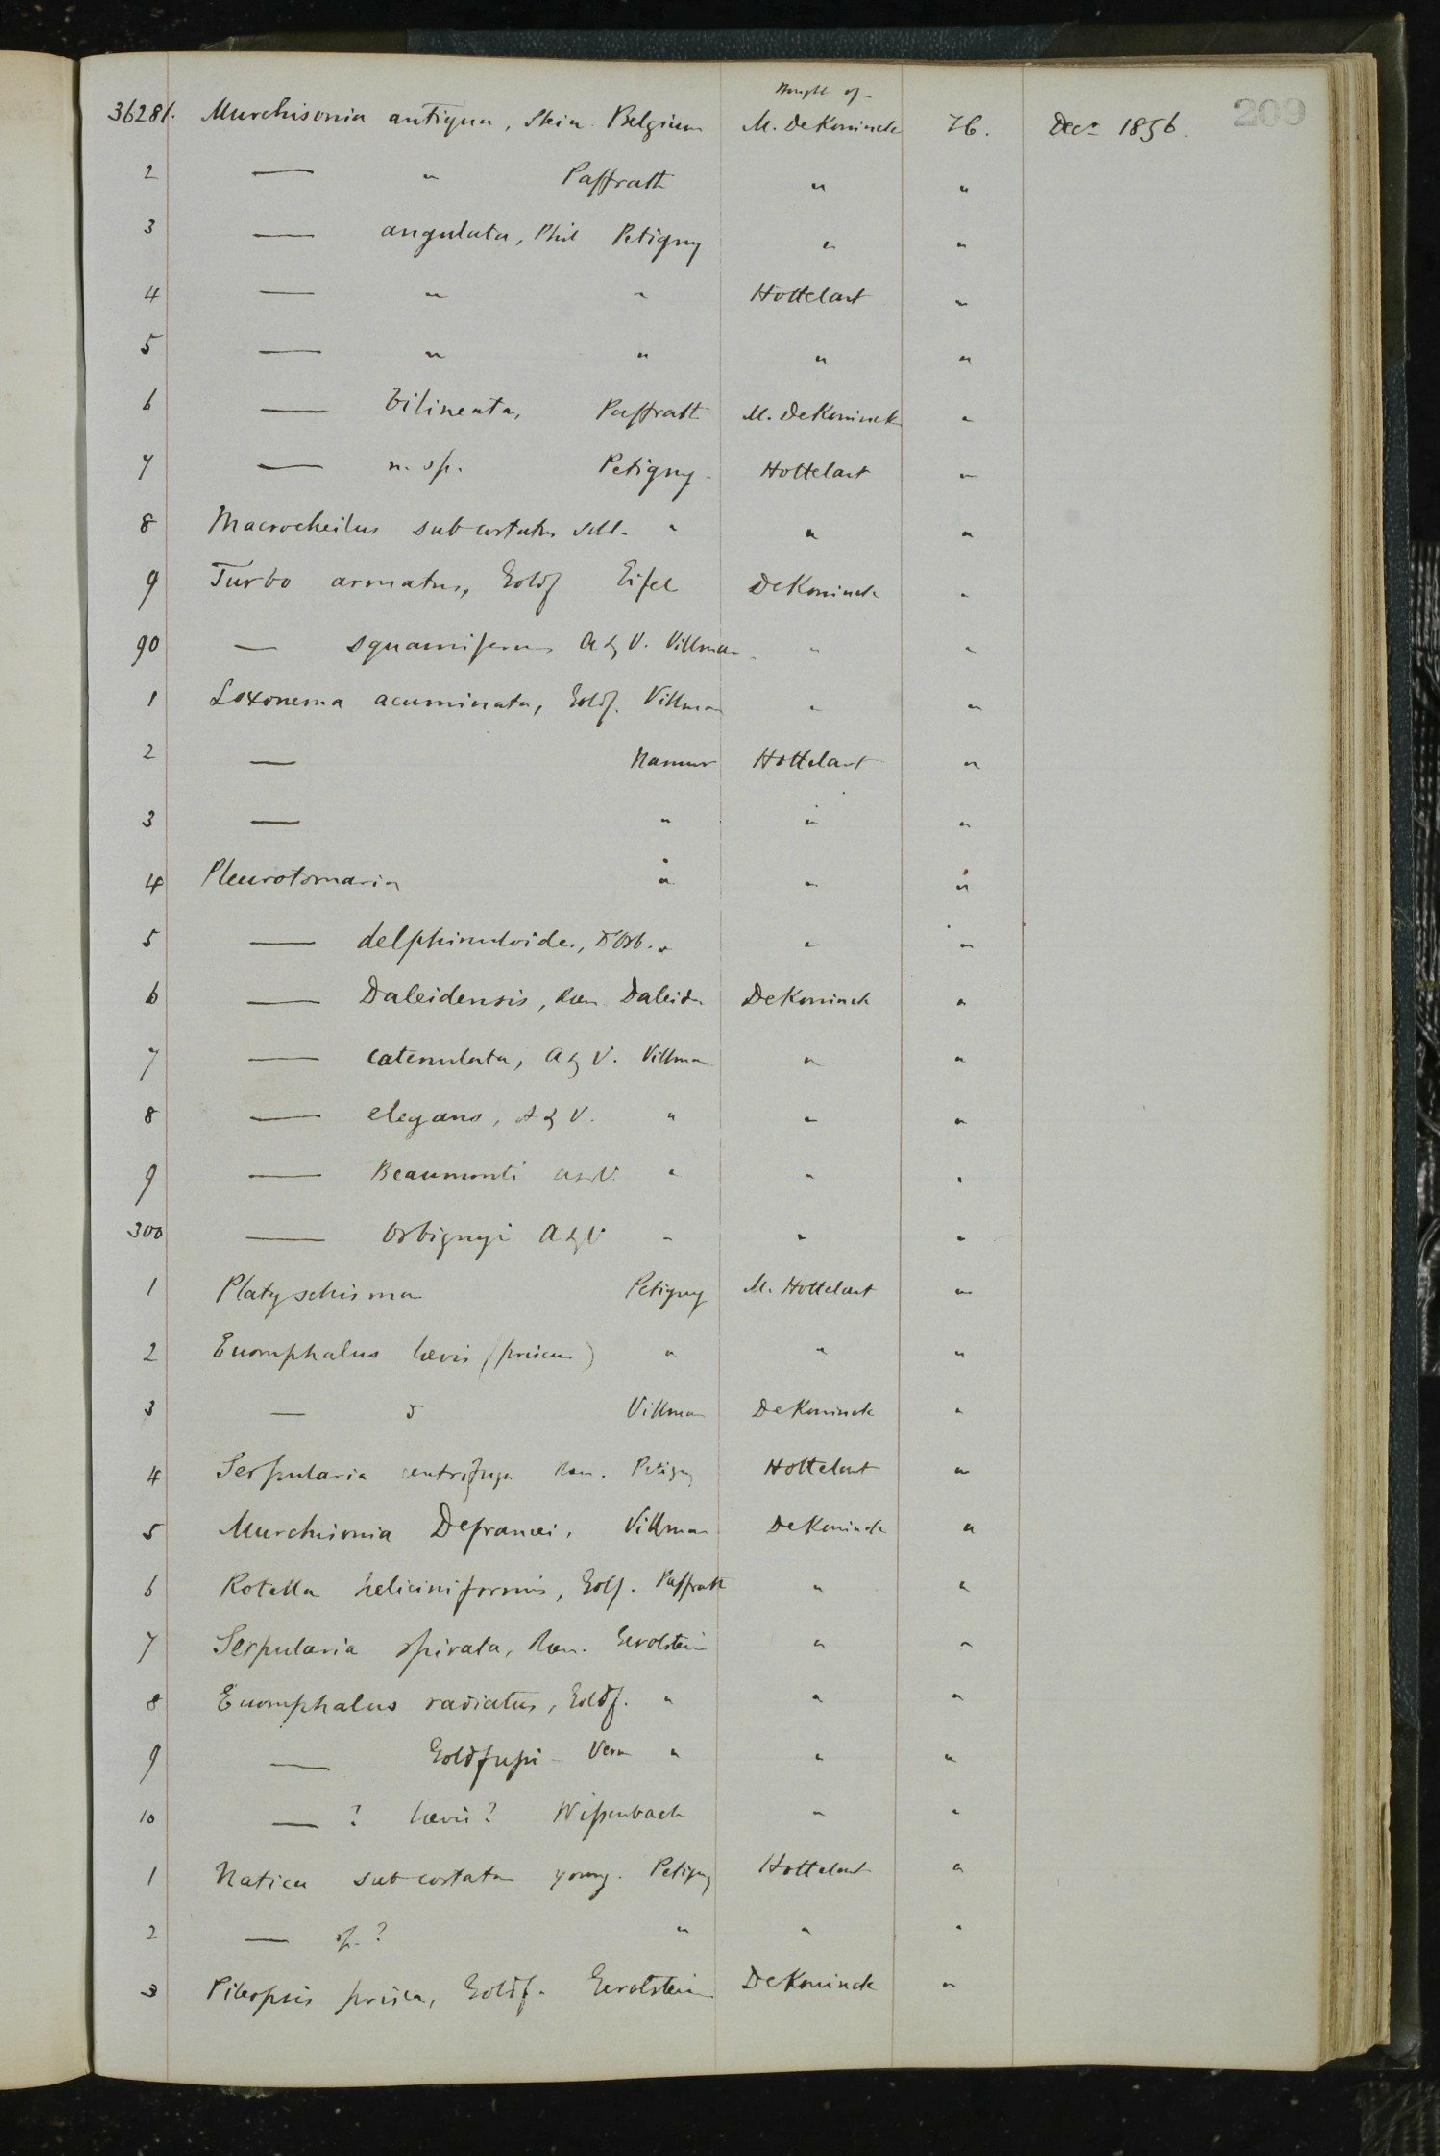 209
Bought of
36281. Murchisonia antiqua, Stein. Belgium M. DeKoninck 76. Decr 1856.
2 — " Paffrath " "
3 — angulata, Phil Petigny " "
4 — " " Hottelart "
5 — " " " "
6 — bilineata, Paffrath M. DeKoninck "
7 — n. sp. Petigny. Hottelart "
8 Macrocheilus subcostatus Schl. " " "
9 Turbo armatus, Goldf Eifel DeKoninck "
90 — squamiferus A & V. Villmar " "
1 Loxonema acuminata, Goldf. Villmar " "
2 — Namur Hottelart "
3 — " " "
4 Pleurotomaria " " "
5 — delphinuloides, D'Orb. " " "
6 — Daleidensis, Rœm Daleid DeKoninck "
7 — catenulata, A & V. Villmar " "
8 — elegans, A & V. " " "
9 — Beaumonti A & V. " " "
300 — Orbignyi A & V " " "
1 Platyschisma Petigny M. Hottelart "
2 Euomphalus lævis (priscus) " " "
3 — d Villmar DeKoninck "
4 Serpularia centrifuga Rœm. Petigny Hottelart "
5 Murchisonia Defrancei, Villmar DeKoninck "
6 Rotella heliciniformis, Golf. Paffrath " "
7 Serpularia spirata, Rœm. Gerolstein " "
8 Euomphalus radiatus, Goldf. " " "
9 — Goldfussi Vern " " "
10 — ? lævis? Wissenbach " "
1 Natica subcostata young. Petigny Hottelart "
2 — sp.? " " "
3 Pileopsis prisca, Goldf. Gerolstein DeKoninck "